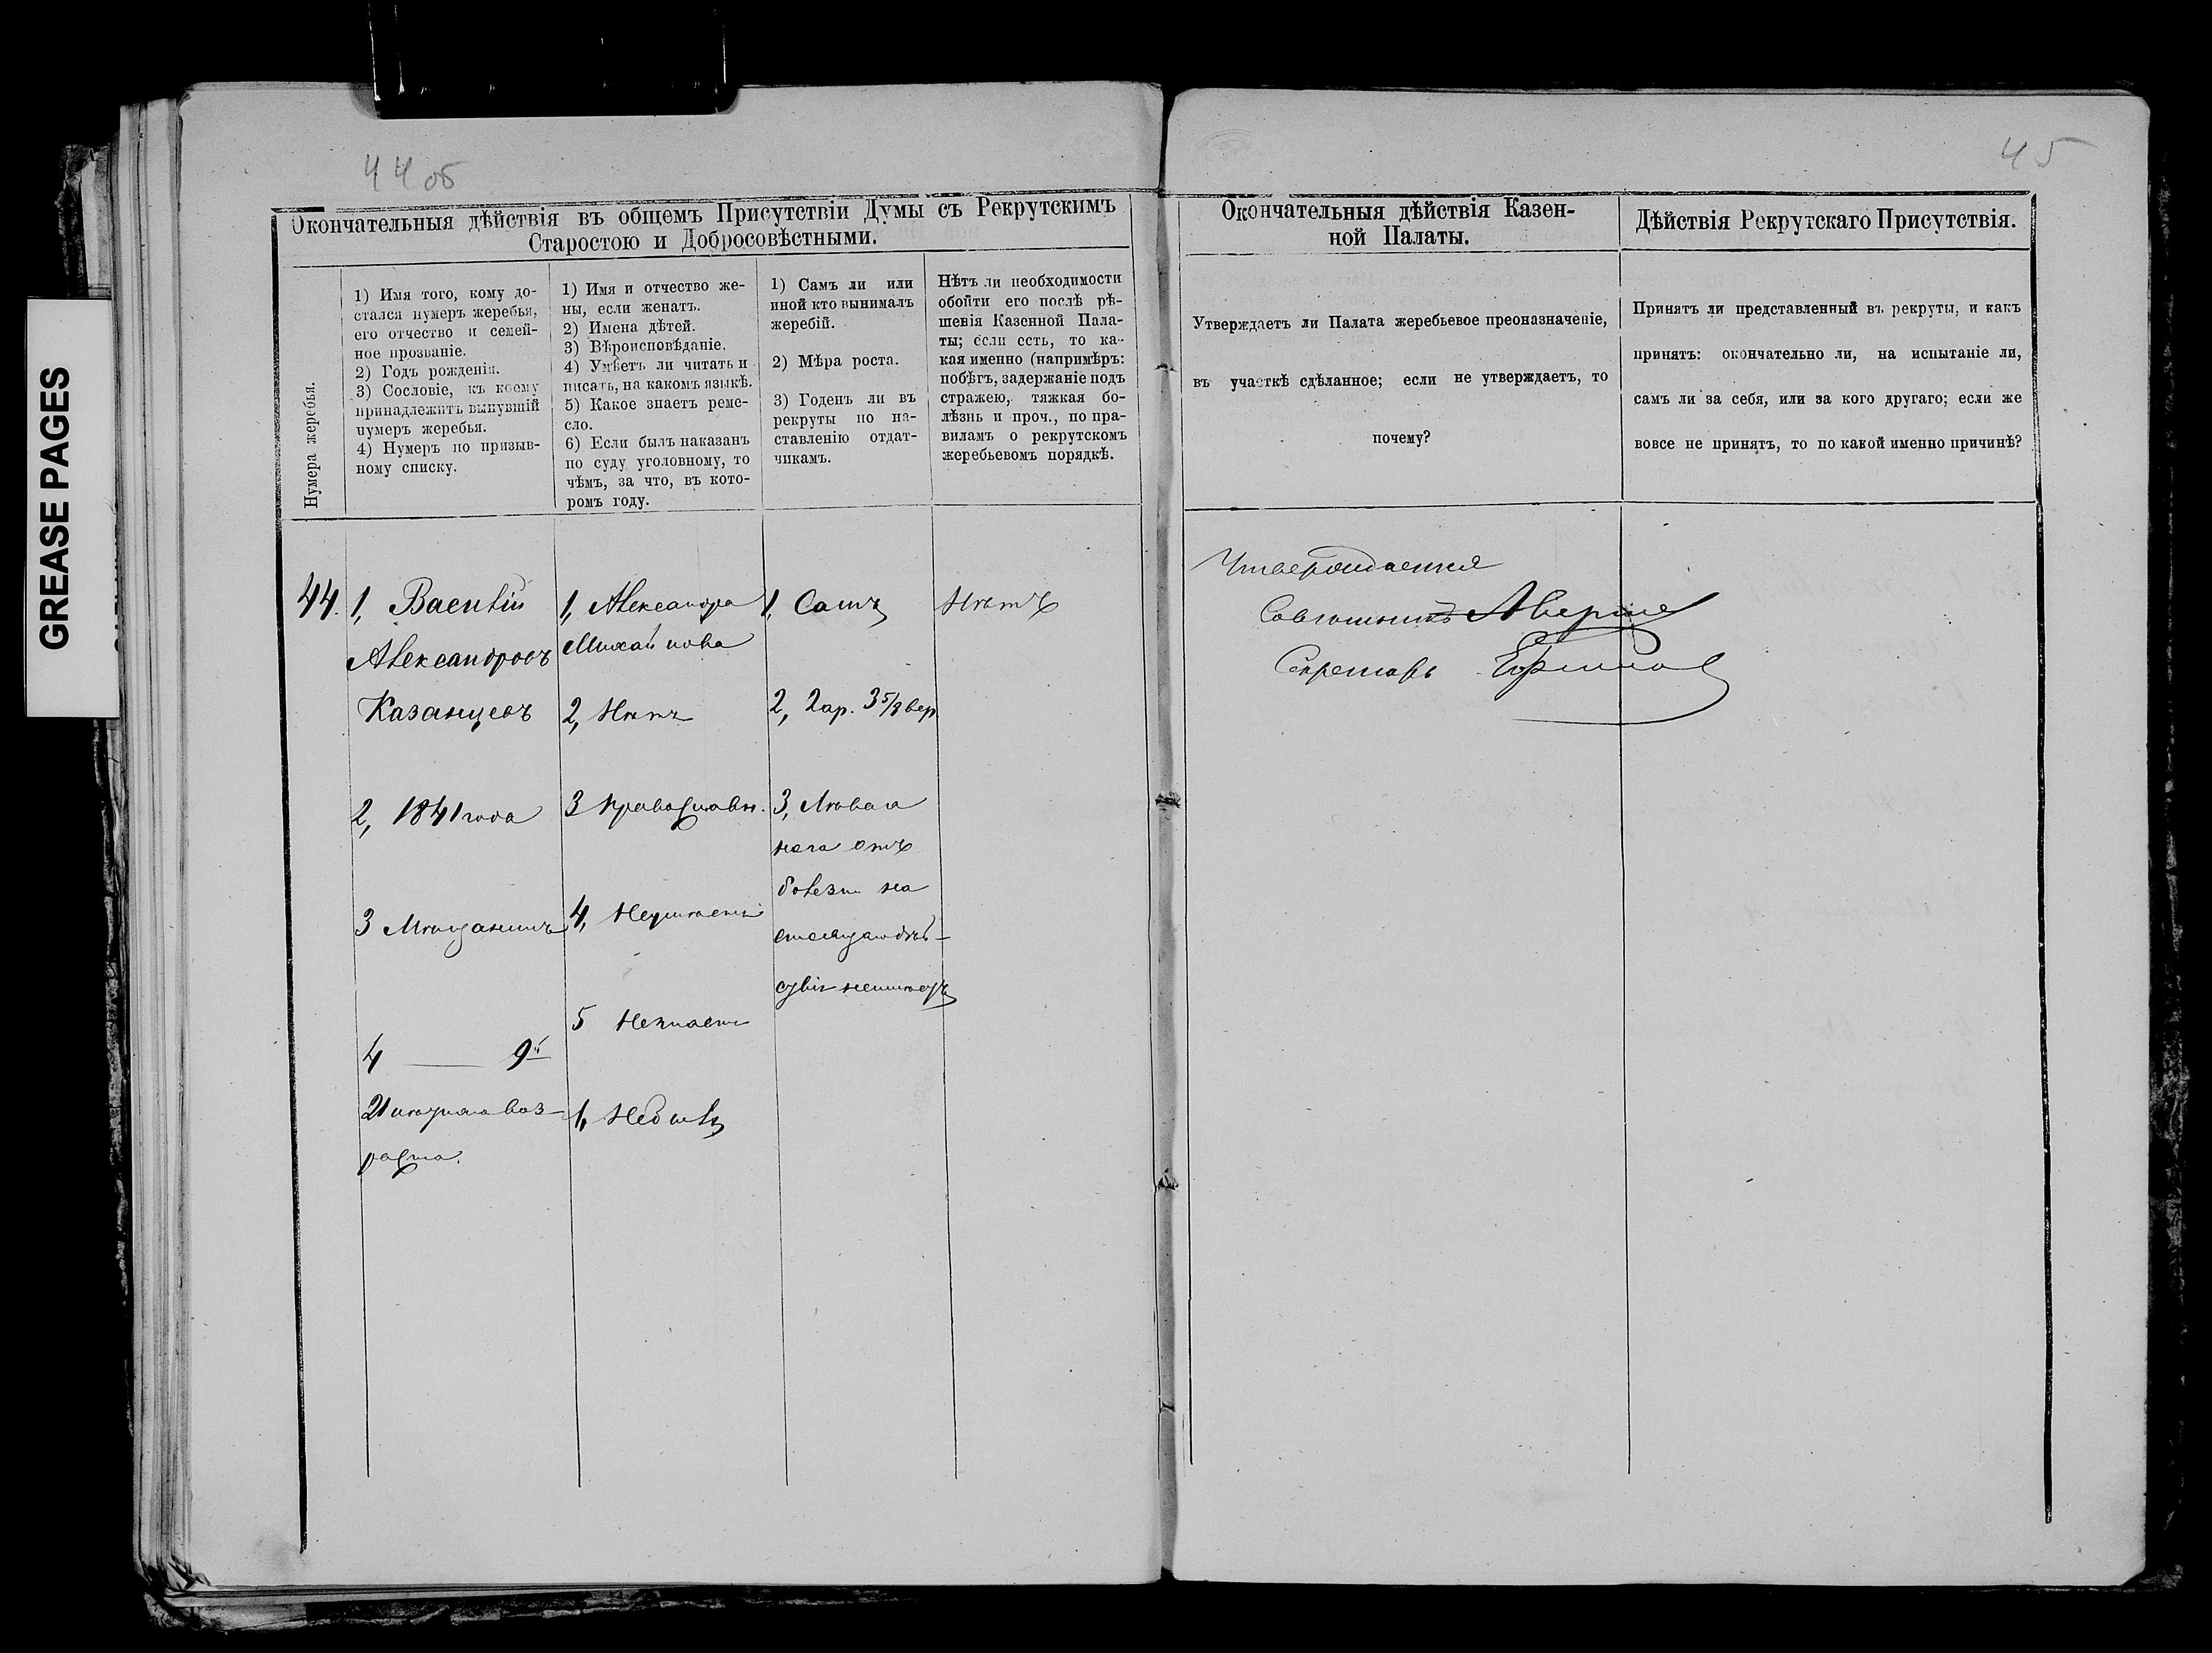 GREASE PAGES
44 об
45
Окончательныя дѣйствія въ общемъ Присутствіи Думы съ Рекрутскимъ
Старостою и Добросовѣстными.
Нумера жеребья.
1) Имя того, кому до-
стался нумеръ жеребья,
его отчество и семей-
ное прозваніе.
2) Годъ рожденія.
3) Сословіе, къ коему
принадлежитъ вынувшій
нумеръ жеребья.
4) Нумеръ по призыв-
ному списку.
1) Имя и отчество же-
ны, если женатъ.
2) Имена дѣтей.
3) Вѣроисповѣданіе.
4) Умѣетъ ли читать и
писать, на какомъ языкѣ.
5) Какое знаетъ реме-
сло.
6) Если былъ наказанъ
по суду уголовному, то
чѣмъ, за что, въ кото-
ромъ году.
1) Самъ ли или
иной кто вынималъ
жеребій.
2) Мѣра роста.
3) Годенъ ли въ
рекруты по на-
ставленію отдат-
чикамъ.
Нѣтъ ли необходимости
обойти его послѣ рѣ-
шенія Казенной Пала-
ты; если есть, то ка-
кая именно (напримѣръ:
побѣгъ, задержаніе подъ
стражею, тяжкая бо-
лѣзнь и проч., по пра-
виламъ о рекрутскомъ
жеребьевомъ порядкѣ.
44.
1, Василій
Александровъ
Казанцевъ
2, 1841 года
3 Мѣщанинъ
4 — 9й
21 лѣтняго воз-
раста.
1, Александра
Михайлова
2, Нѣтъ
3 Православн.
4, Неумѣетъ
5 Незнаетъ
6, Небылъ
1, Самъ
2, 2 ар. 3 5/8 вер
3, Лѣвая
нога отъ
болезни на
Нѣтъ
Окончательныя дѣйствія Казен-
ной Палаты.
Утверждаетъ ли Палата жеребьевое преоназначеніе,
въ участкѣ сдѣланное; если не утверждаетъ, то
почему?
Утверждается
Совѣтникъ
Секретарь
Дѣйствія Рекрутскаго Присутствія.
Принятъ ли представленный въ рекруты, и какъ
принятъ: окончательно ли, на испытаніе ли,
самъ ли за себя, или за кого другаго; если же
вовсе не принятъ, то по какой именно причинѣ?